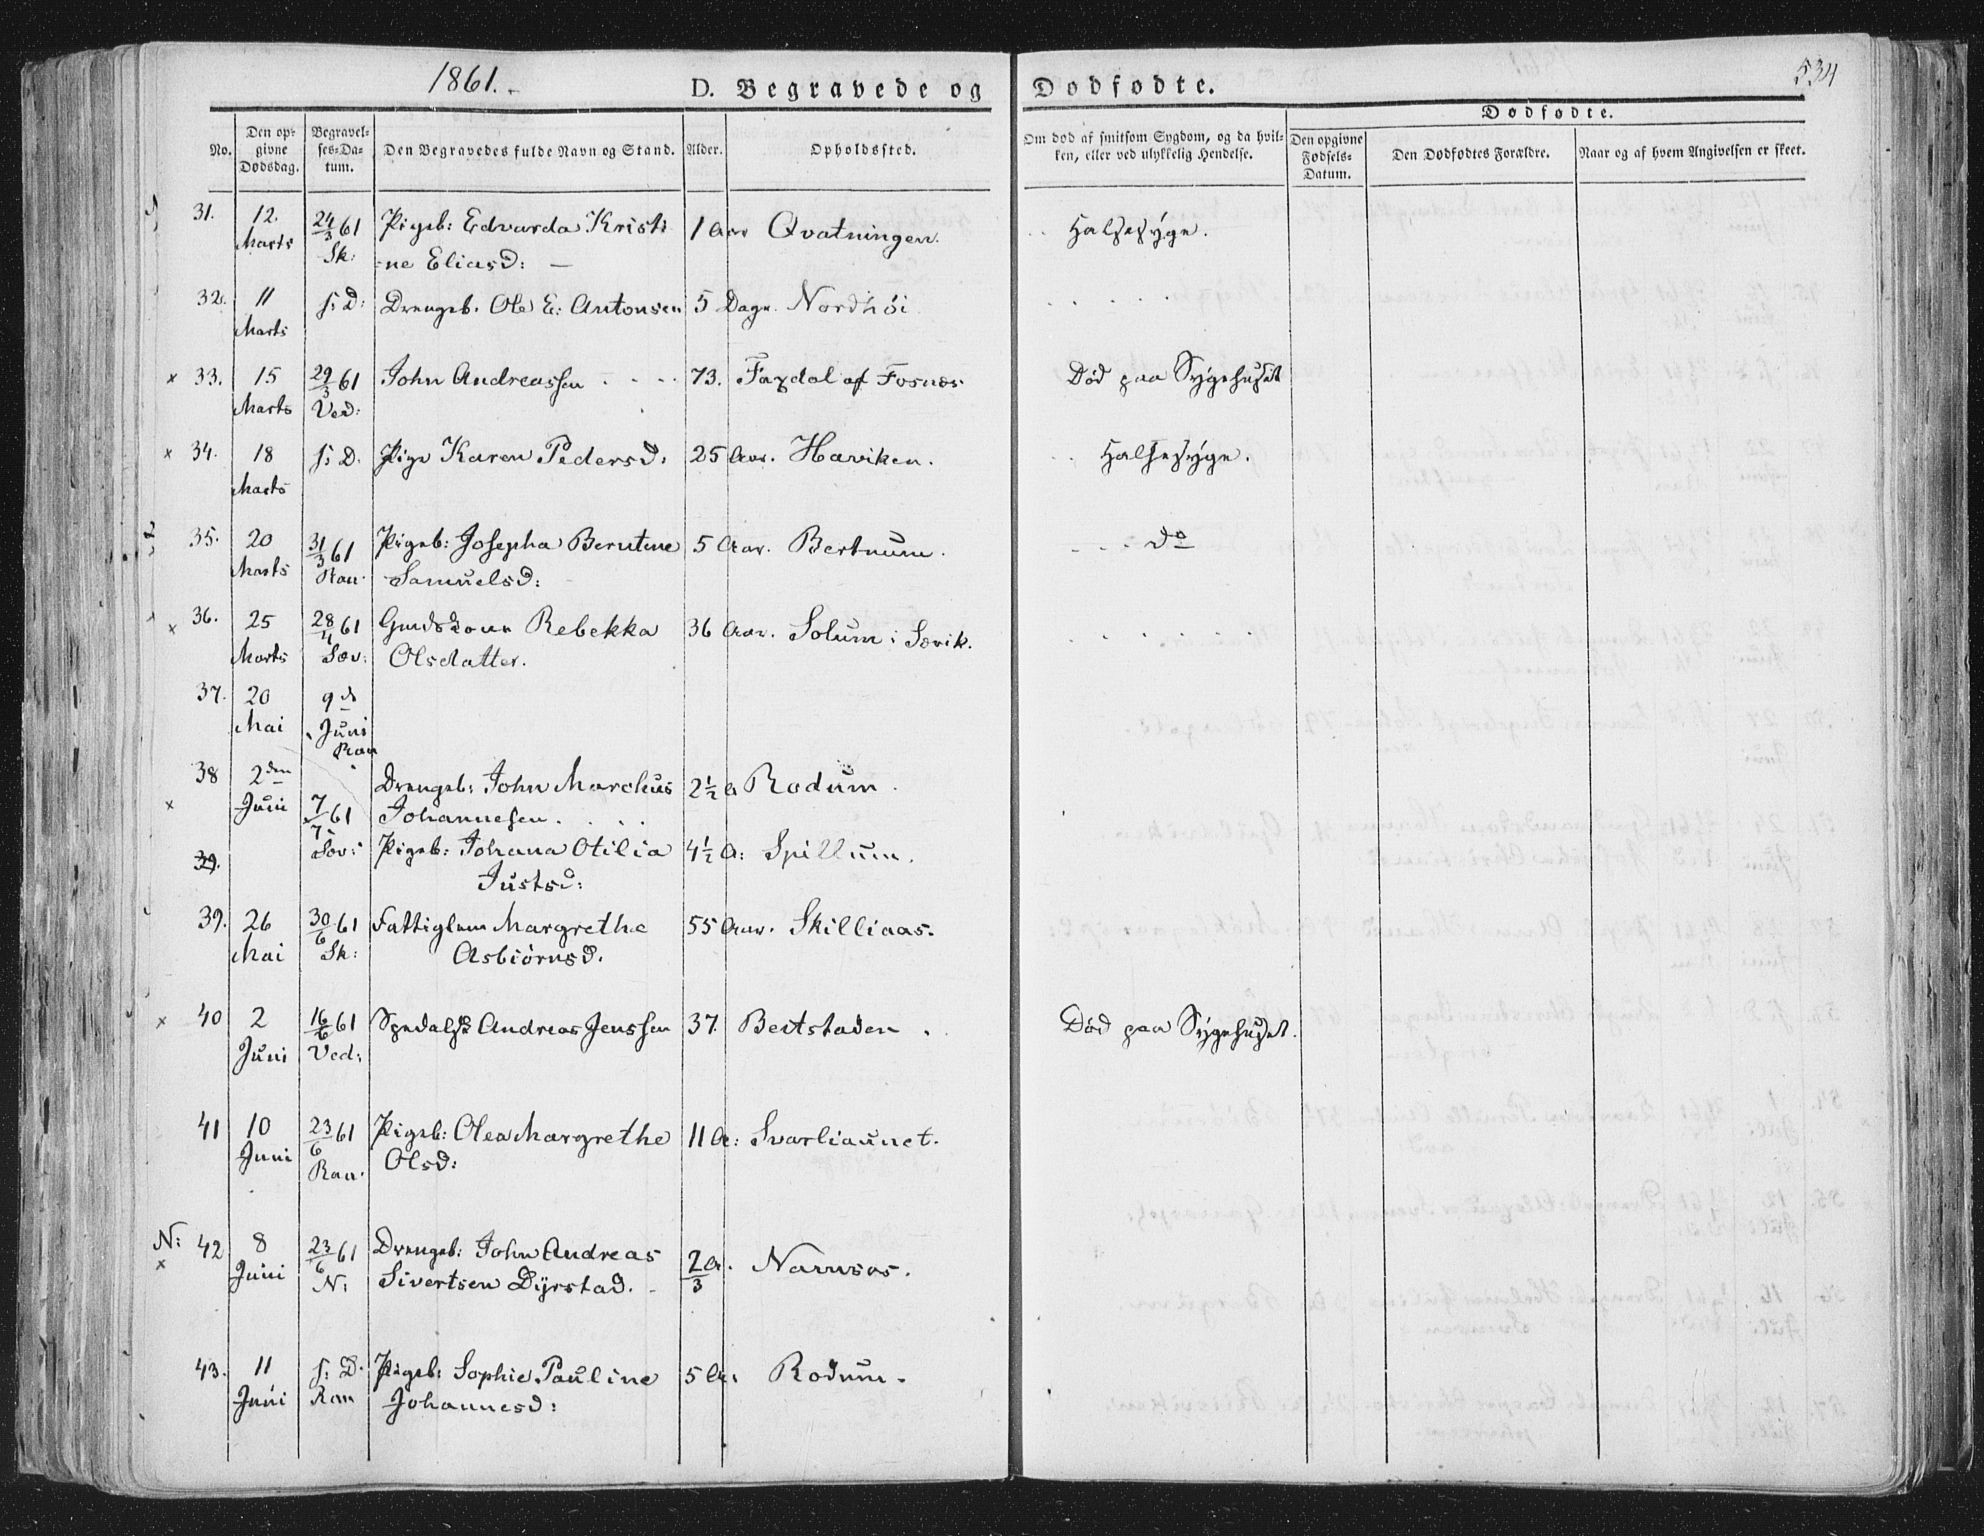 1861.
D. Begravede og Dødfødte.
534
Dødfødte.
No.
Den opgivne Dødsdag.
Begravelses-Datum.
Den Begravedes fulde Navn og Stand.
Alder.
Opholdssted.
Om død af smitsom Sygdom, og da hvilken, eller ved ulykkelig Hendelse.
Den opgivne Fødsels-Datum.
Den Dødfødtes Forældre.
Naar og af hvem Angivelsen er skeet.
31. 12. 24/3 61 Pigeb: Edvarda Kristi 1 Aar Qvatningen. Halsesyge.
Marts Sk: -ne Eliasd: —
32. 11 s: D: Drengeb. Ole E: Antonsen 5 Dage. Nordhöi
Marts
x 33. 15 29/3 61 John Andreassen 73. Faxdal af Fosnæs Död paa Sygehuset
Marts Ved:
x 34. 18 s: D. Pige Karen Pedersd: 25 Aar. Haviken. Halsesyge.
Marts
35. 20 31/3 61 Pigeb: Josepha Berntine 5 Aar. Bertnum. do
Marts Ran. Samuelsd:
36. 25 28/4 61 Rebekka 36 Aar. Solum i Særvik.
x Marts Sæv: Olsdatter.
37. 20 9de
Mai Juni
Ran
38 2den Drengeb: John Marchus 2½ A Rodum.
x Juni 7/7 61 Johannesen.
39. Sæv: Pigeb: Johana Otilia 4½ A: Spillum.
Justsd:
39. 26 30/6 61 Fattiglem Margrethe 55 Aar. Skilliaas.
Mai Sk: Asbiörnsd.
x 40 2 16/6 61 Spedalsk Andreas Jenssen 37. Beitstaden. Död paa Sygehuset.
Juni Ved:
41 10 23/6 61 Pigeb: Olea Margrethe 11 A: Svarliaunet.
Juni Ran. Olsd:
N: 42 8 23/6 61 Drengeb: John Andreas 2/3 A. Namsos.
x Juni N: Sivertsen Dyrstad.
43. 11 s: D. Pigeb: Sophie Pauline 5 A: Rodum.
Juni Ran Johannesd: